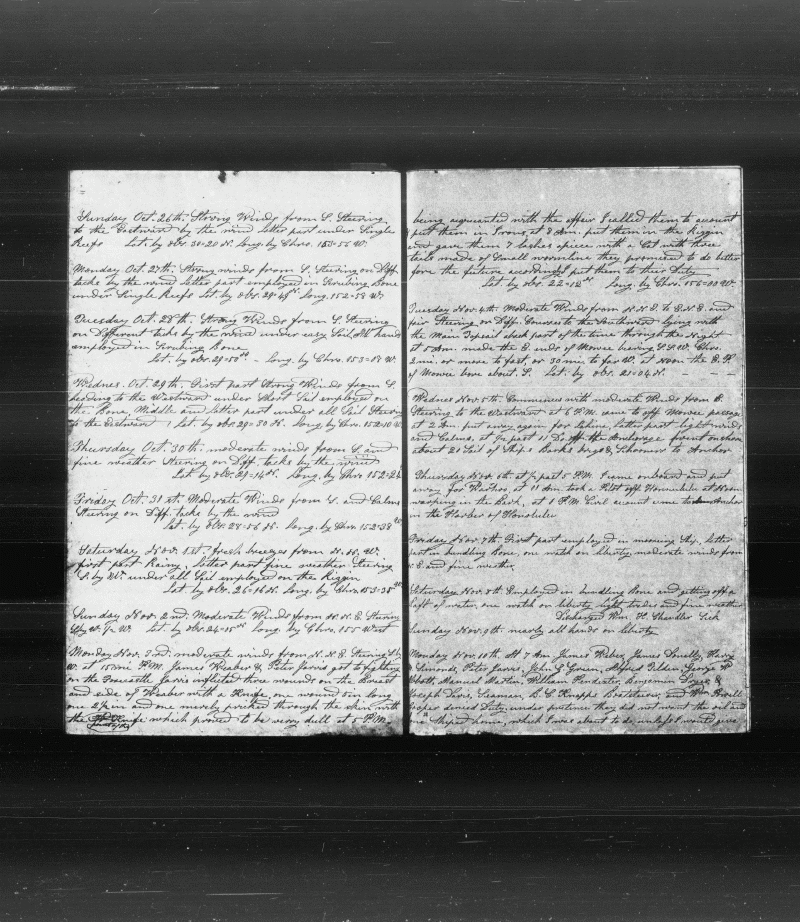 Sunday Oct. 26th. Strong Winds from S. Steering
to the Eastward by the wind latter part under Single
Reefs Lat. by obs. 30-20 N. Long. by Chro. 153-56 W.
Monday Oct. 27th. Strong winds from S. Steering on Diff.
tacks by the wind latter part employed in Scrubing Bone
under Single Reefs Lat. by obs. 29-49 N. Long. 152-58 W.
Tuesday Oct. 28th. Strong Winds from S. Steering
on Different tacks by the wind under easy Sail, All hands
employed in Scrubing Bone
Lat. by obs. 29-50 - Long. by Chro. 153-17 W.
Wednes. Oct. 29th. First part Strong Winds from S.
heading to the Westward under Short Sail employed on
the Bone, Middle and latter part under all Sail Steering
to the Eastward Lat. by obs. 29-30 N. Long. by Chro. 152-10 W.
Thursday Oct. 30th. moderate winds from S. and
fine weather Steering on Diff. tacks by the wind
Lat. by obs. 29-14 N. Long. by Chro 152-24
Friday Oct. 31st. Moderate Winds from S. and Calms
Steering on Diff. tacks by the wind
Lat. by obs. 28-56 N. Long. by Chro. 152-38
Saturday Nov. 1st. fresh breezes from N. W.
first part Rainy, latter part fine weather Steering
S. by W. under all Sail employed on the Riggin
Lat. by obs. 26-16 N. Long. by Chro. 153-35
Sunday Nov. 2nd. Moderate Winds from N. N. E. Steering
S by W. 1/2 W. Lat. by obs. 24-15 N. Long. by Chro. 155 West
Monday Nov. 3rd. moderate winds from N. N. E. Steering S by
W. at 15 min P.M. James Weaber & Peter Jarvis got to fighting
on the Foucastle Jarvis inflicted three wounds on the Breast
and side of Weaber with a Knife, one wound 5 in long
one 2 1/2 in and one merely pricked through the skin with
the Knife which proved to be very dull at 5 P.M.
being aquainted with the affair I called them to account
put them in Irons, at 8 Am. put them in the Riggin
and gave them 7 lashes apiece with a Cat with three
tails made of Small woomline they promised to do better
fore the future accordingly put them to their Duty
Lat. by obs. 22-12 Long. by Chro. 156-00 W.
Tuesday Nov. 4th. Moderate Winds from N.N.E. to E.N.E. and
fair Steering on Diff. Courses to the Southward lying with
the Main Topsail aback part of the time through the Night
at 5 Am. made the E. ends of Mowee bearing S.S.W. Chro.
2 mi. or more to fast, or 30 mi. to far W. at Noon the E. P.
of Mowee bore about S. Lat. by obs. 21-04 N.
Wednes Nov. 5th. Commences with moderate Winds from E.
Steering to the Westward at 6 P.M. came to off Morocai passage
at 2 Am. put away again for Lahina, latter part light winds
and Calms, at 1/2 past 11 off the Anchorage front
about 20 Sail of Ships Barks Brigs & Schooners to Anchor
Thursday Nov. 6th. at 1/2 past 5 P.M. I came onboard and put
away for Woahoo, at 11 Am. took a Pilot off Honoulu at Noon
warping in the Bark, at 1 P.M. Civil account came to Anchor
in the Harbor of Honolulu
Friday Nov. 7th. First part employed in mooring Ship, latter
part in bundling Bone, one watch on liberty, moderate winds from
N. E. and fine weather
Saturday Nov. 8th. Employed in bundling Bone and getting off a
Raft of water, one watch on liberty light trades and fine weather
Discharged Wm. H. Chandler Sick
Sunday Nov. 9th. nearly all hands on liberty
Monday Nov. 10th. At 7 Am James Weber, James Donelly, Harry
Simonds, Peter Jarvis, John G Green, Alfred Tilden, George W
Abott, Manuel Martin, William Benjamin &
Joseph Seaman, Boatsteerer, and Wm.
Cooper denied Duty, under pretince they did not want the oil and
Bone Shiped home, which I was about to do unless I would give